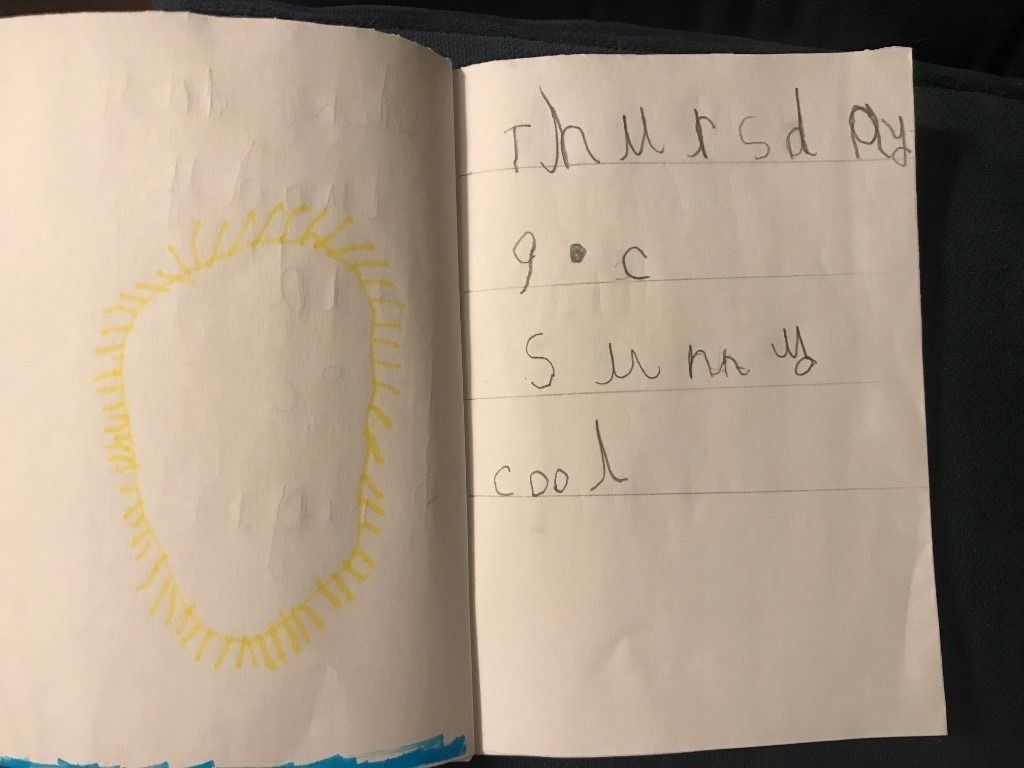 Thursday
9•c
Sunny
cool